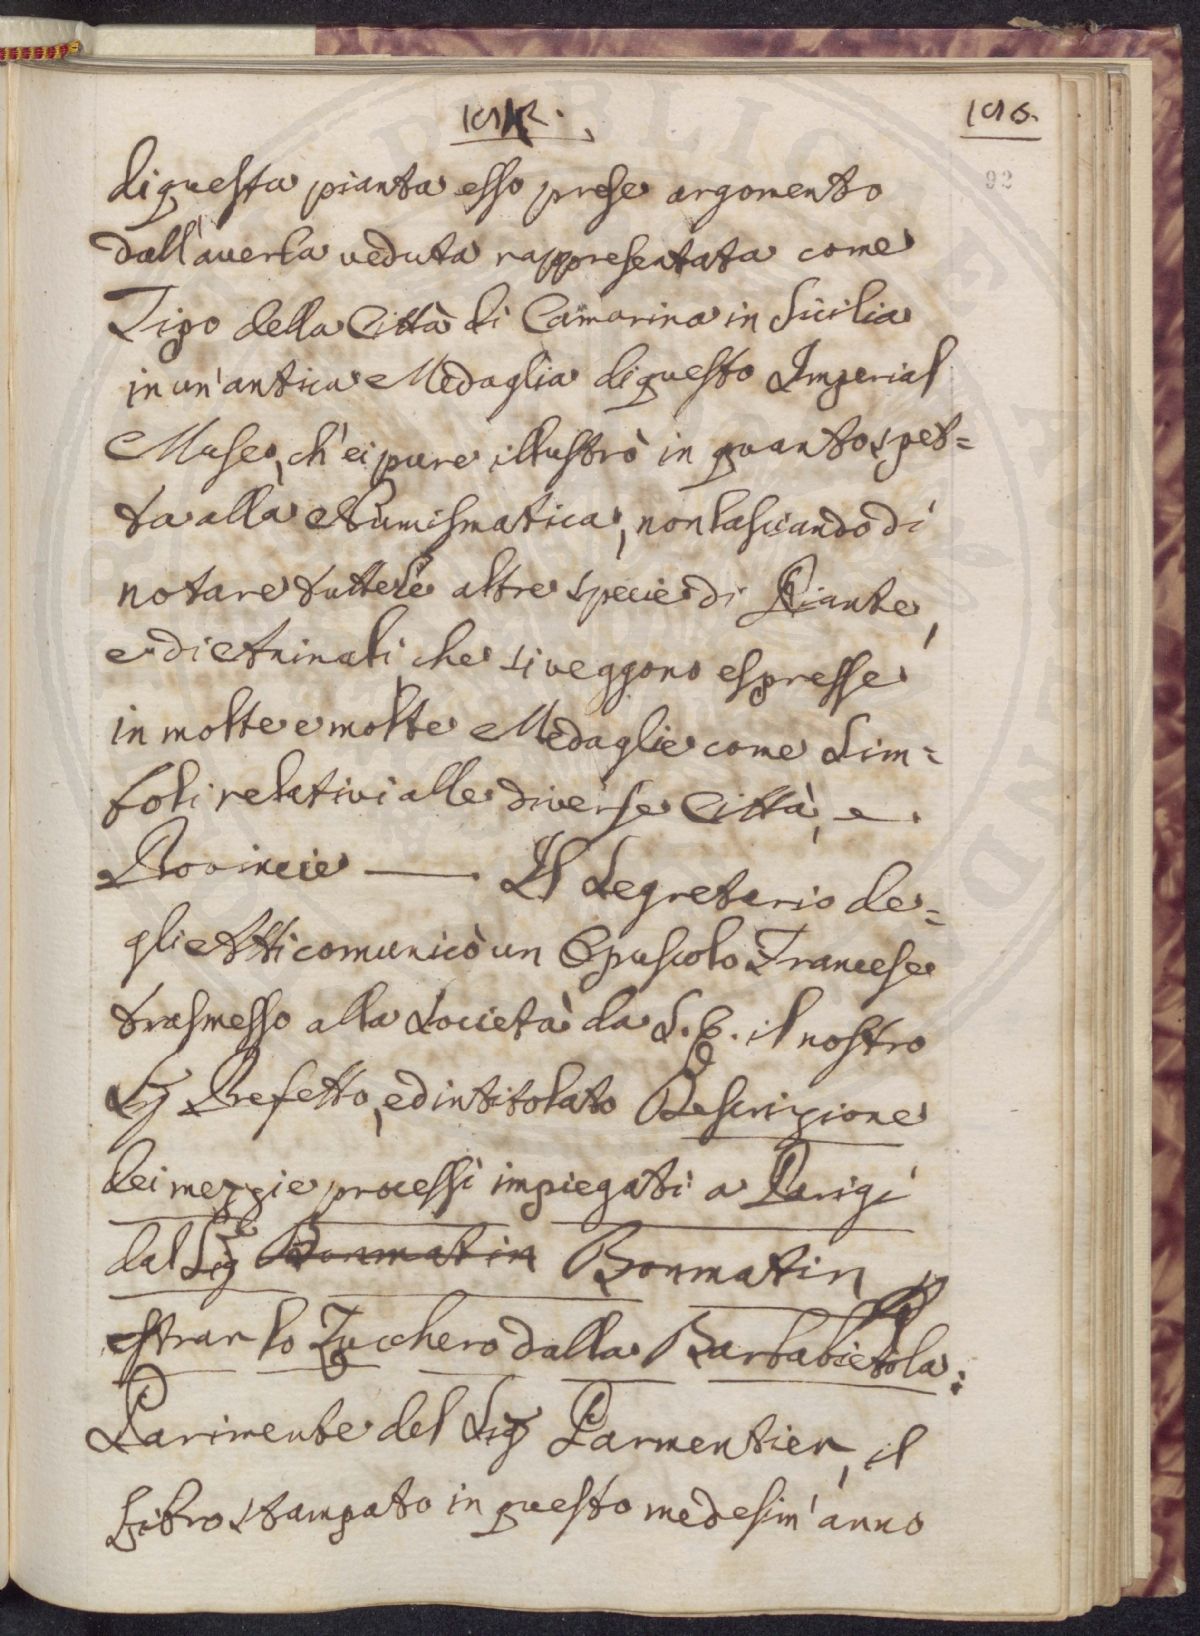 1812.
196.
92
di questa pianta esso prese argomento
dall'averla veduta rappresentata come
Tipo della Città di Camarina in Sicilia
in un'antica Medaglia di questo Imperial
Museo, ch'ei pure illustrò in quanto spet=
ta alla Numismatica, non lasciando di
notare tutte le altre specie di Piante,
e di Animali che si veggono espresse
in molte e molte Medaglie come Sim=
boli relativi alle diverse Città, e
Provincie —— Il Segretario de=
gli Atti comunicò un Opuscolo Francese
trasmesso alla Società da S. E. il nostro
Sig Prefetto, ed intitolato Descrizione
dei mezzi e processi impiegati a Parigi
dal Sig Bonmatin Bonmatin p
estrar lo Zucchero dalla Barbabietola:
Parimente del Sig Parmentier, il
Libro stampato in questo medesim'anno